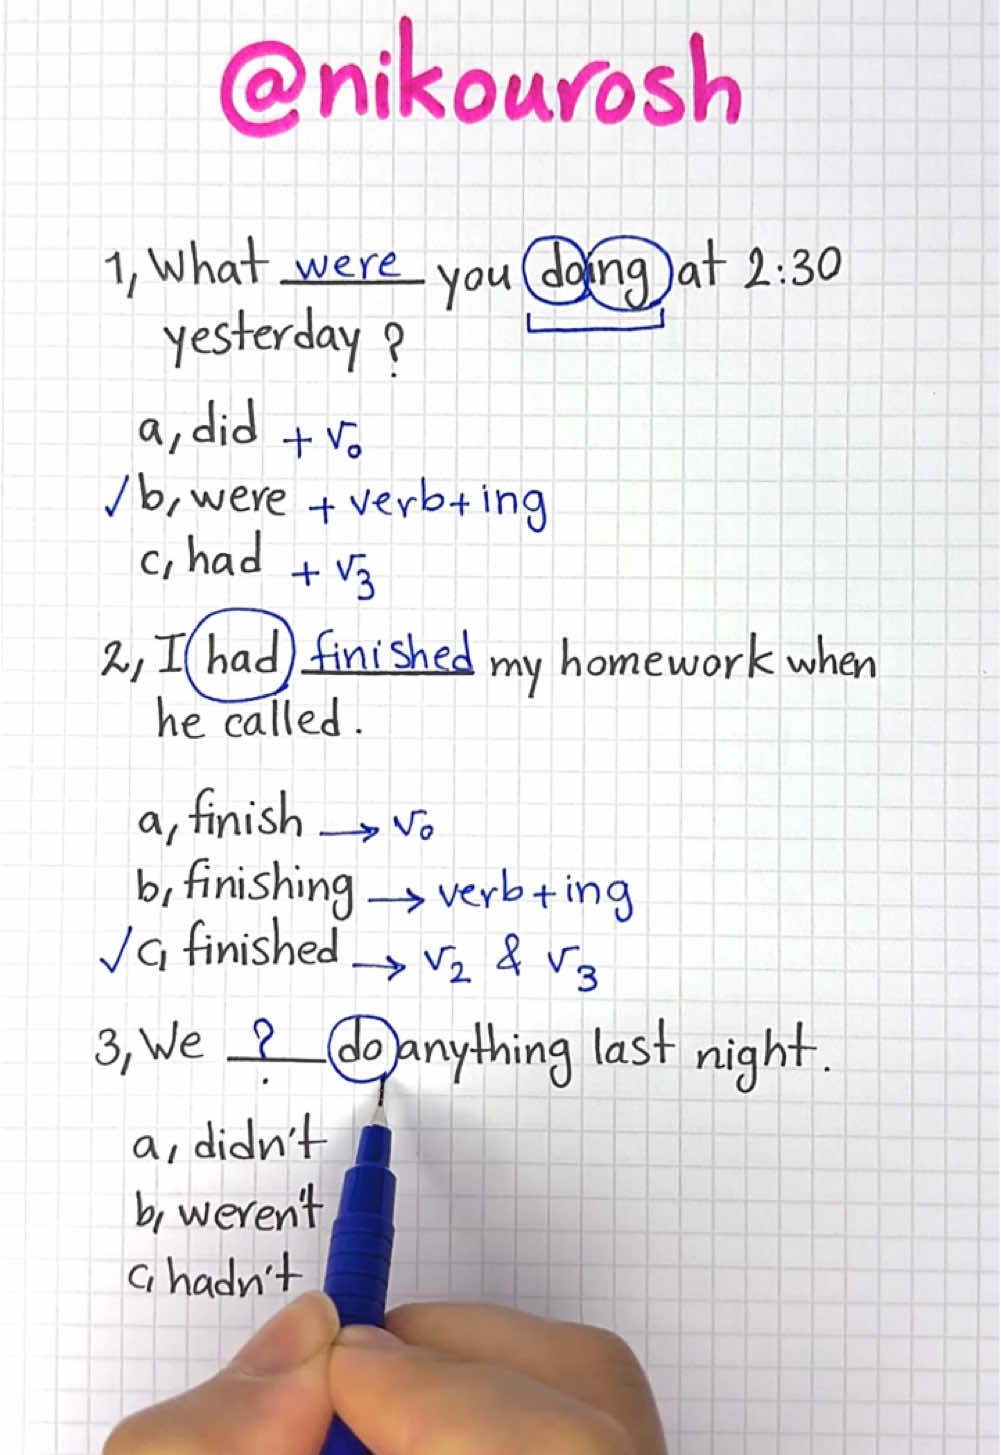 @nikourosh
1, What were you doing at 2:30
yesterday ?
a, did + v₀
✓ b, were + verb+ing
c, had + v3
2, I had finished my homework when
he called.
a, finish → v₀
b, finishing → verb+ing
✓ c, finished → v2 & v3
3, We ? do anything last night.
a, didn't
b, weren't
c, hadn't